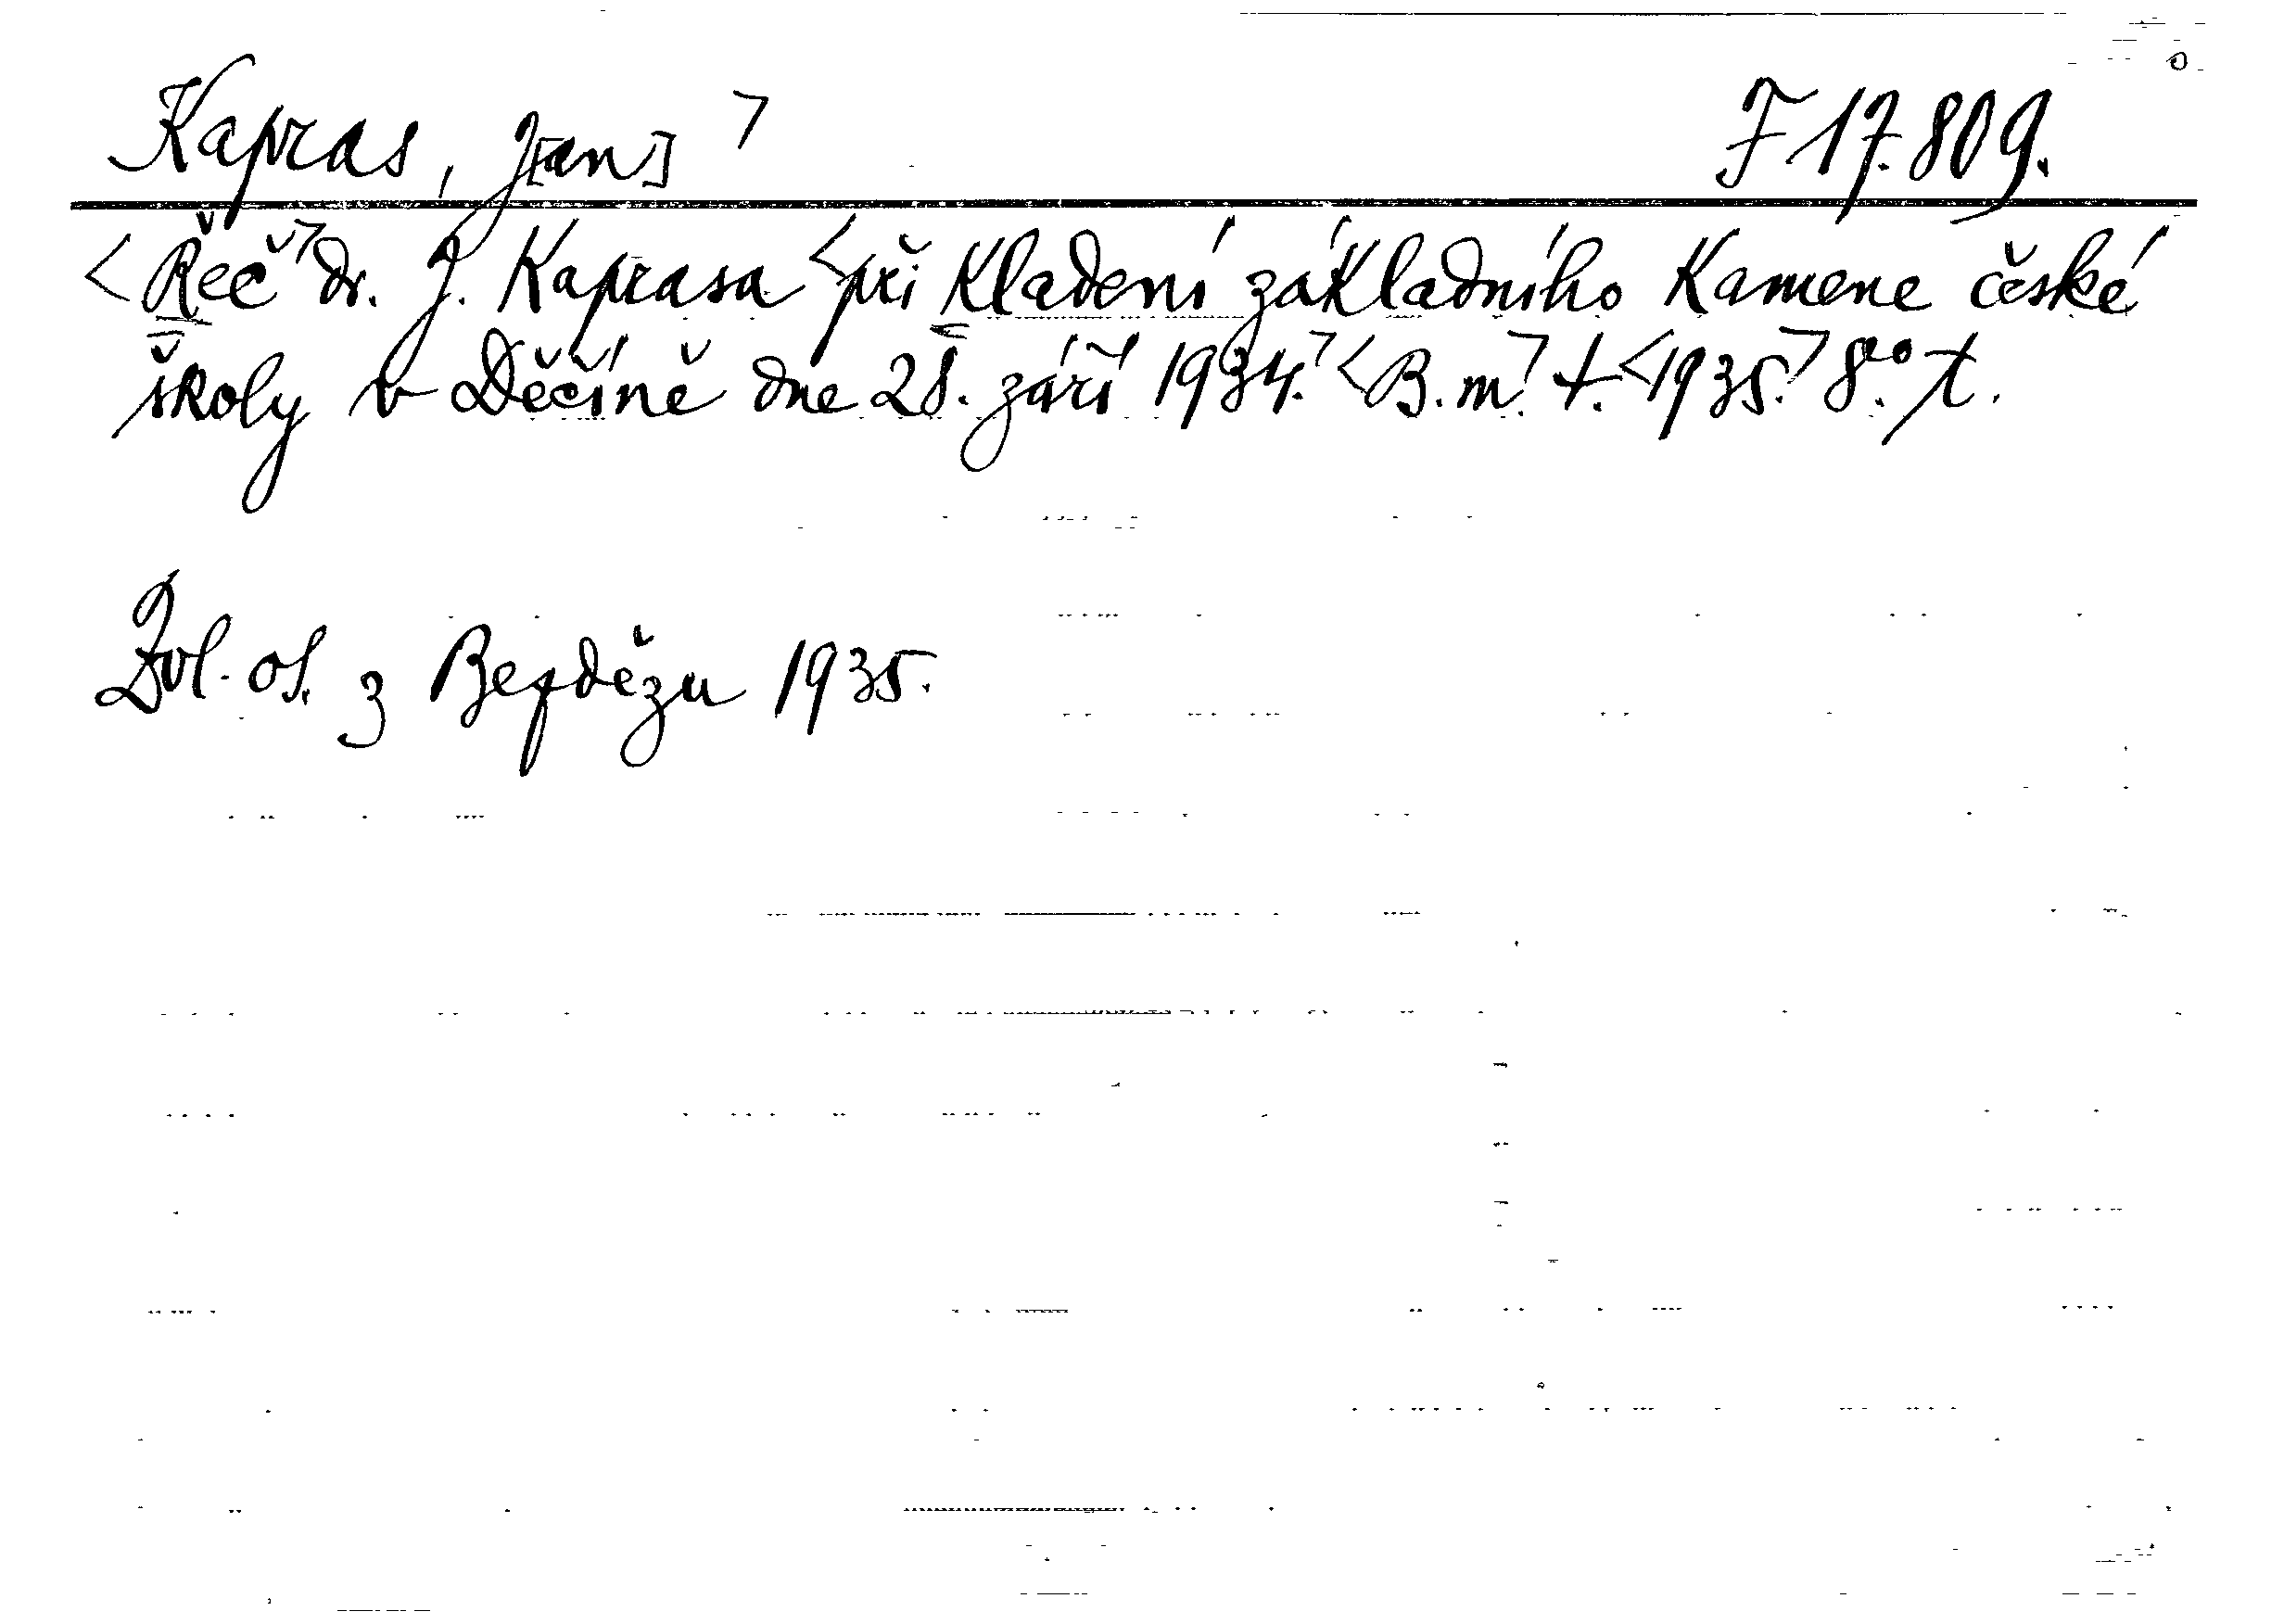 Kapras, J[an] > F 17.809.
<Řeč> dr. J. Kaprasa <při kladení základního kamene české
školy v Děčíně dne 28. září 1934.> <B. m.> t. <1935.> 8.° t.
Zvl. ot. z Bezdězu 1935.